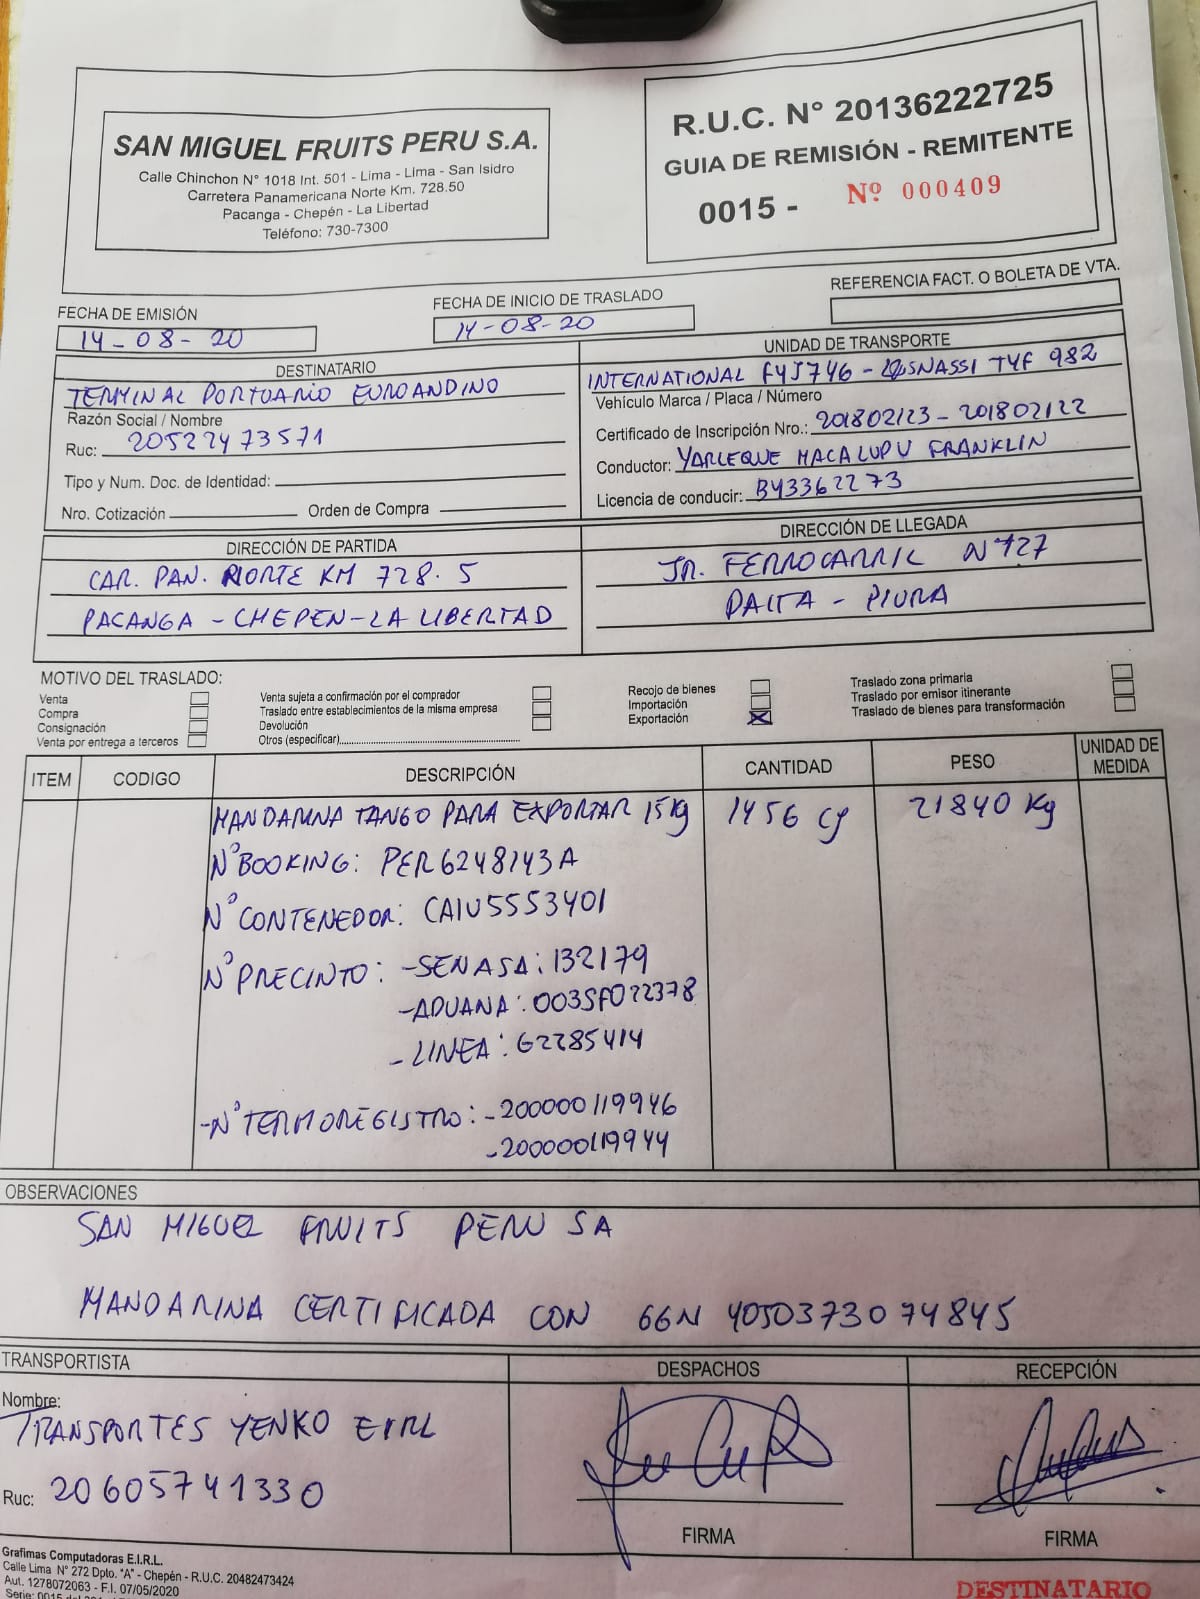 SAN MIGUEL FRUITS PERU S.A.
Calle Chinchon N° 1018 Int. 501 - Lima - Lima - San Isidro
Carretera Panamericana Norte Km. 728.50
Pacanga - Chepén - La Libertad
Teléfono: 730-7300
R.U.C. N° 20136222725
GUIA DE REMISIÓN - REMITENTE
0015 - Nº 000409
FECHA DE EMISIÓN
14-08-20
FECHA DE INICIO DE TRASLADO
14-08-20
REFERENCIA FACT. O BOLETA DE VTA.
DESTINATARIO
TERMINAL PORTUARIO EUROANDINO
Razón Social / Nombre
Ruc: 20522473571
Tipo y Num. Doc. de Identidad:
Nro. Cotización Orden de Compra
UNIDAD DE TRANSPORTE
INTERNATIONAL F4J746 - TYF 982
Vehículo Marca / Placa / Número
Certificado de Inscripción Nro.: 201802123 - 201802122
Conductor: YARLEQUE MACALUPU FRANKLIN
Licencia de conducir: B43362273
DIRECCIÓN DE PARTIDA
CAR. PAN. NORTE KM 728.5
PACANGA - CHEPEN - LA LIBERTAD
DIRECCIÓN DE LLEGADA
JR. FERROCARRIL N°127
PAITA - PIURA
MOTIVO DEL TRASLADO:
Venta
Compra
Consignación
Venta por entrega a terceros
Venta sujeta a confirmación por el comprador
Traslado entre establecimientos de la misma empresa
Devolución
Otros (especificar)
Recojo de bienes
Importación
Exportación X
Traslado zona primaria
Traslado por emisor itinerante
Traslado de bienes para transformación
ITEM CODIGO DESCRIPCIÓN CANTIDAD PESO UNIDAD DE MEDIDA
MANDARINA TANGO PARA EXPORTAR 15kg 1456 cj 21840 Kg
N° BOOKING: PER6248143A
N° CONTENEDOR: CAIU5553401
N° PRECINTO: -SENASA: 132179
-ADUANA: 003SF022378
-LINEA: G2285414
-N° TERMOREGISTRO: -200000119946
-200000119944
OBSERVACIONES
SAN MIGUEL FRUITS PERU SA
MANDARINA CERTIFICADA CON GGN 4050373074845
TRANSPORTISTA
Nombre:
TRANSPORTES YENKO EIRL
Ruc: 20605741330
DESPACHOS
FIRMA
RECEPCIÓN
FIRMA
Grafimas Computadoras E.I.R.L.
Calle Lima N° 272 Dpto. "A" - Chepén - R.U.C. 20482473424
Aut. 1278072063 - F.I. 07/05/2020
Serie: 0015 del
DESTINATARIO